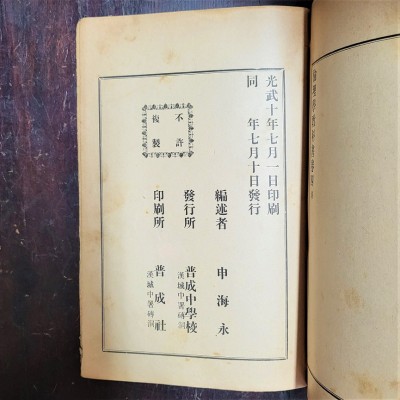 光武十年七月一日印刷
同　年七月十日發行
編述者　申海永
發行所　普成中學校
漢城中署磚洞
印刷所　普成社
漢城中署磚洞
不許
複製